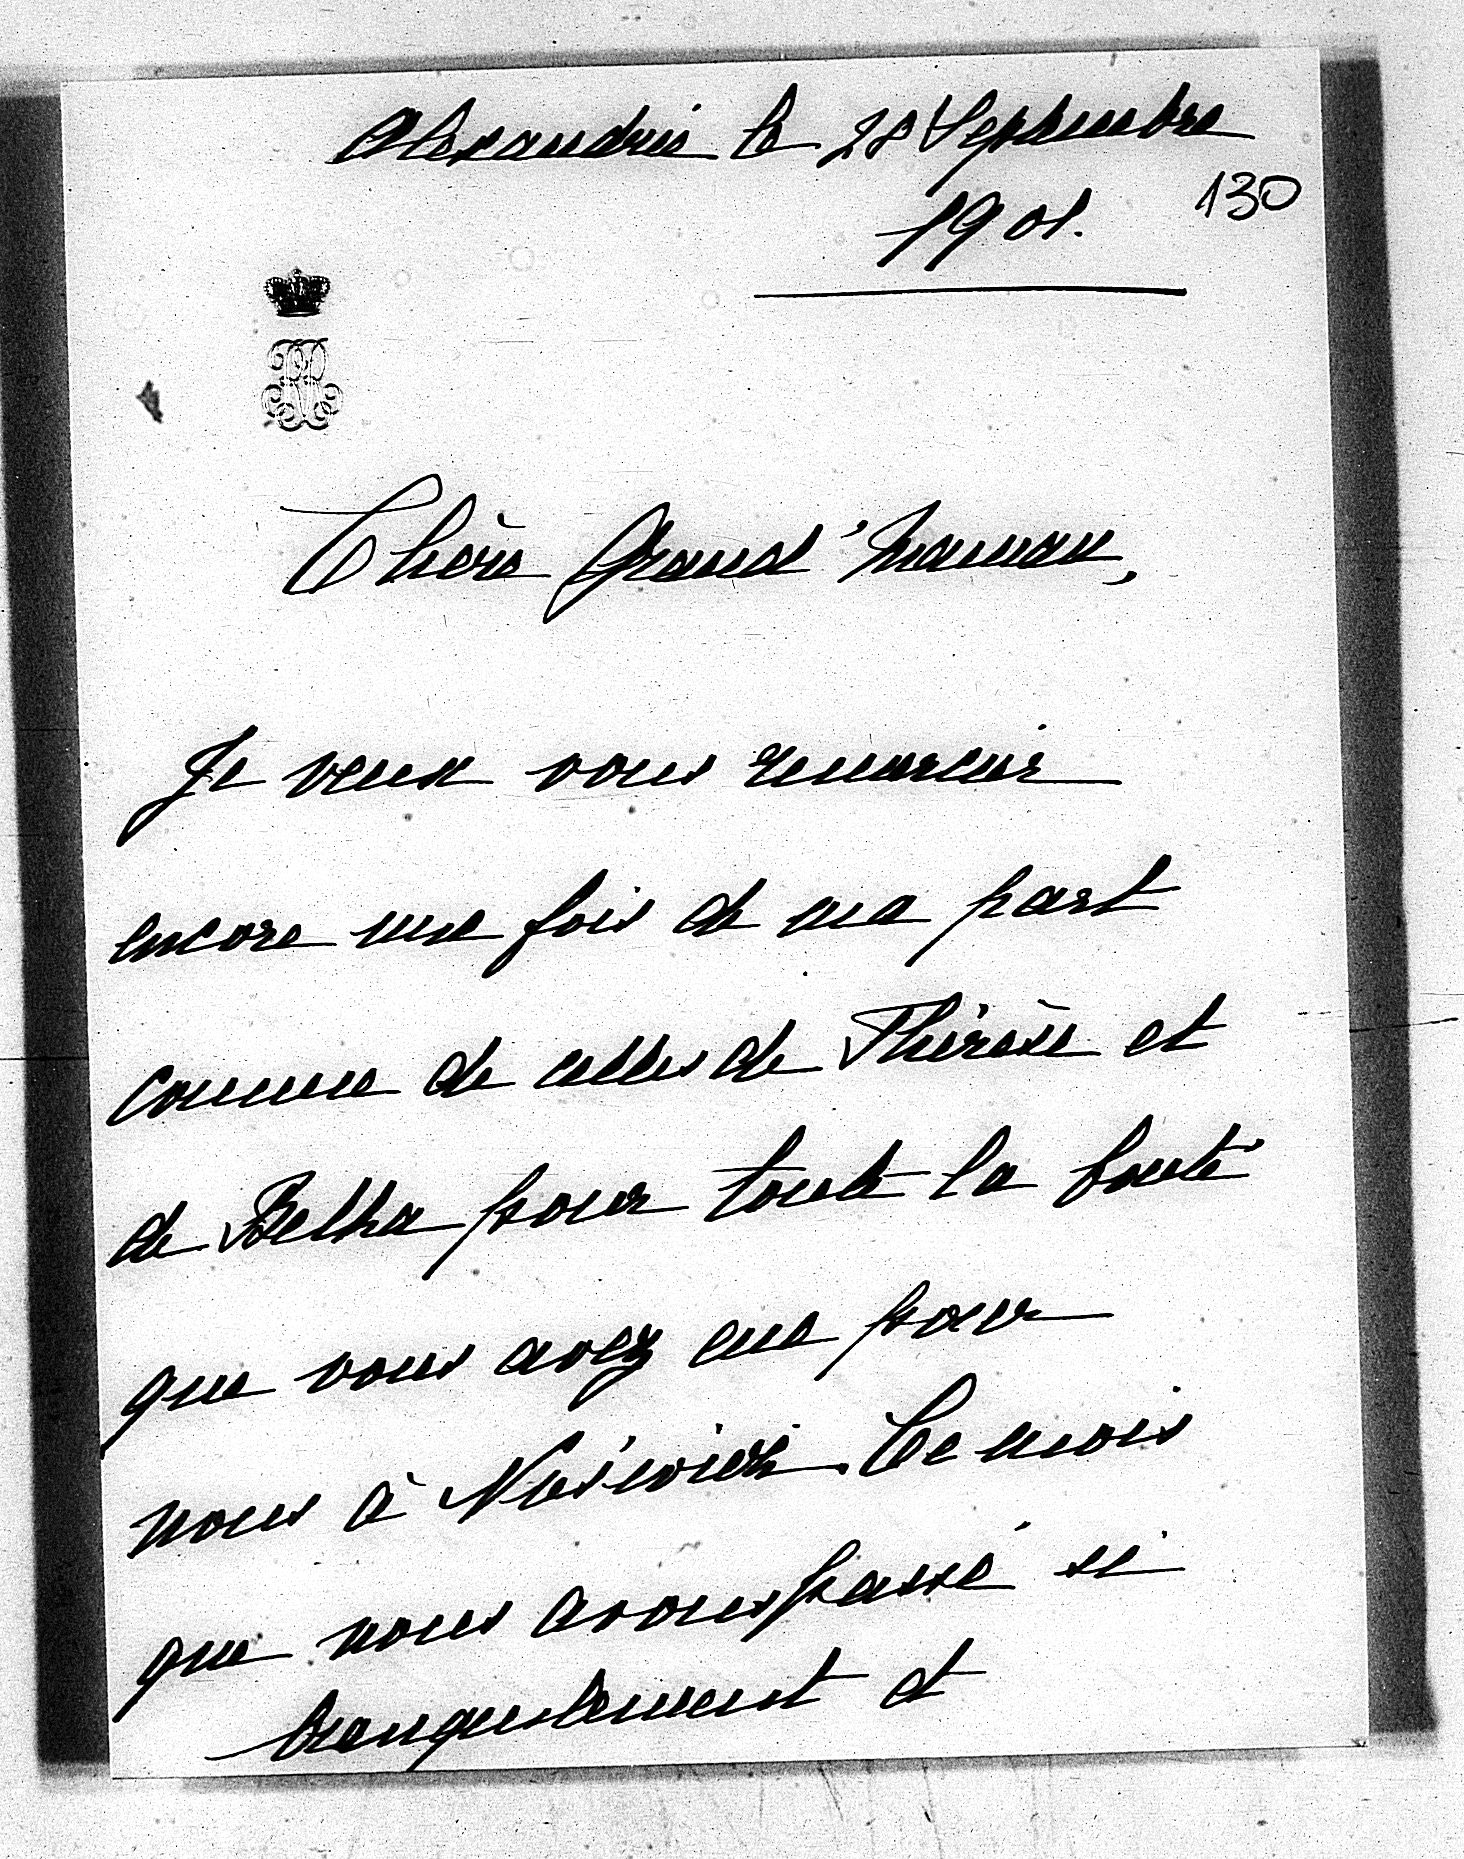 Alexandrie le 28 Septembre
1901.
130
Chère Grand'Maman,
Je veux vous remercier
encore une fois de ma part
comme de celles de Thérèse et
de Betka pour toute la bonté
que vous avez eue pour
nous à Nieświeź. Ce mois
que nous avons passé si
tranquilement et